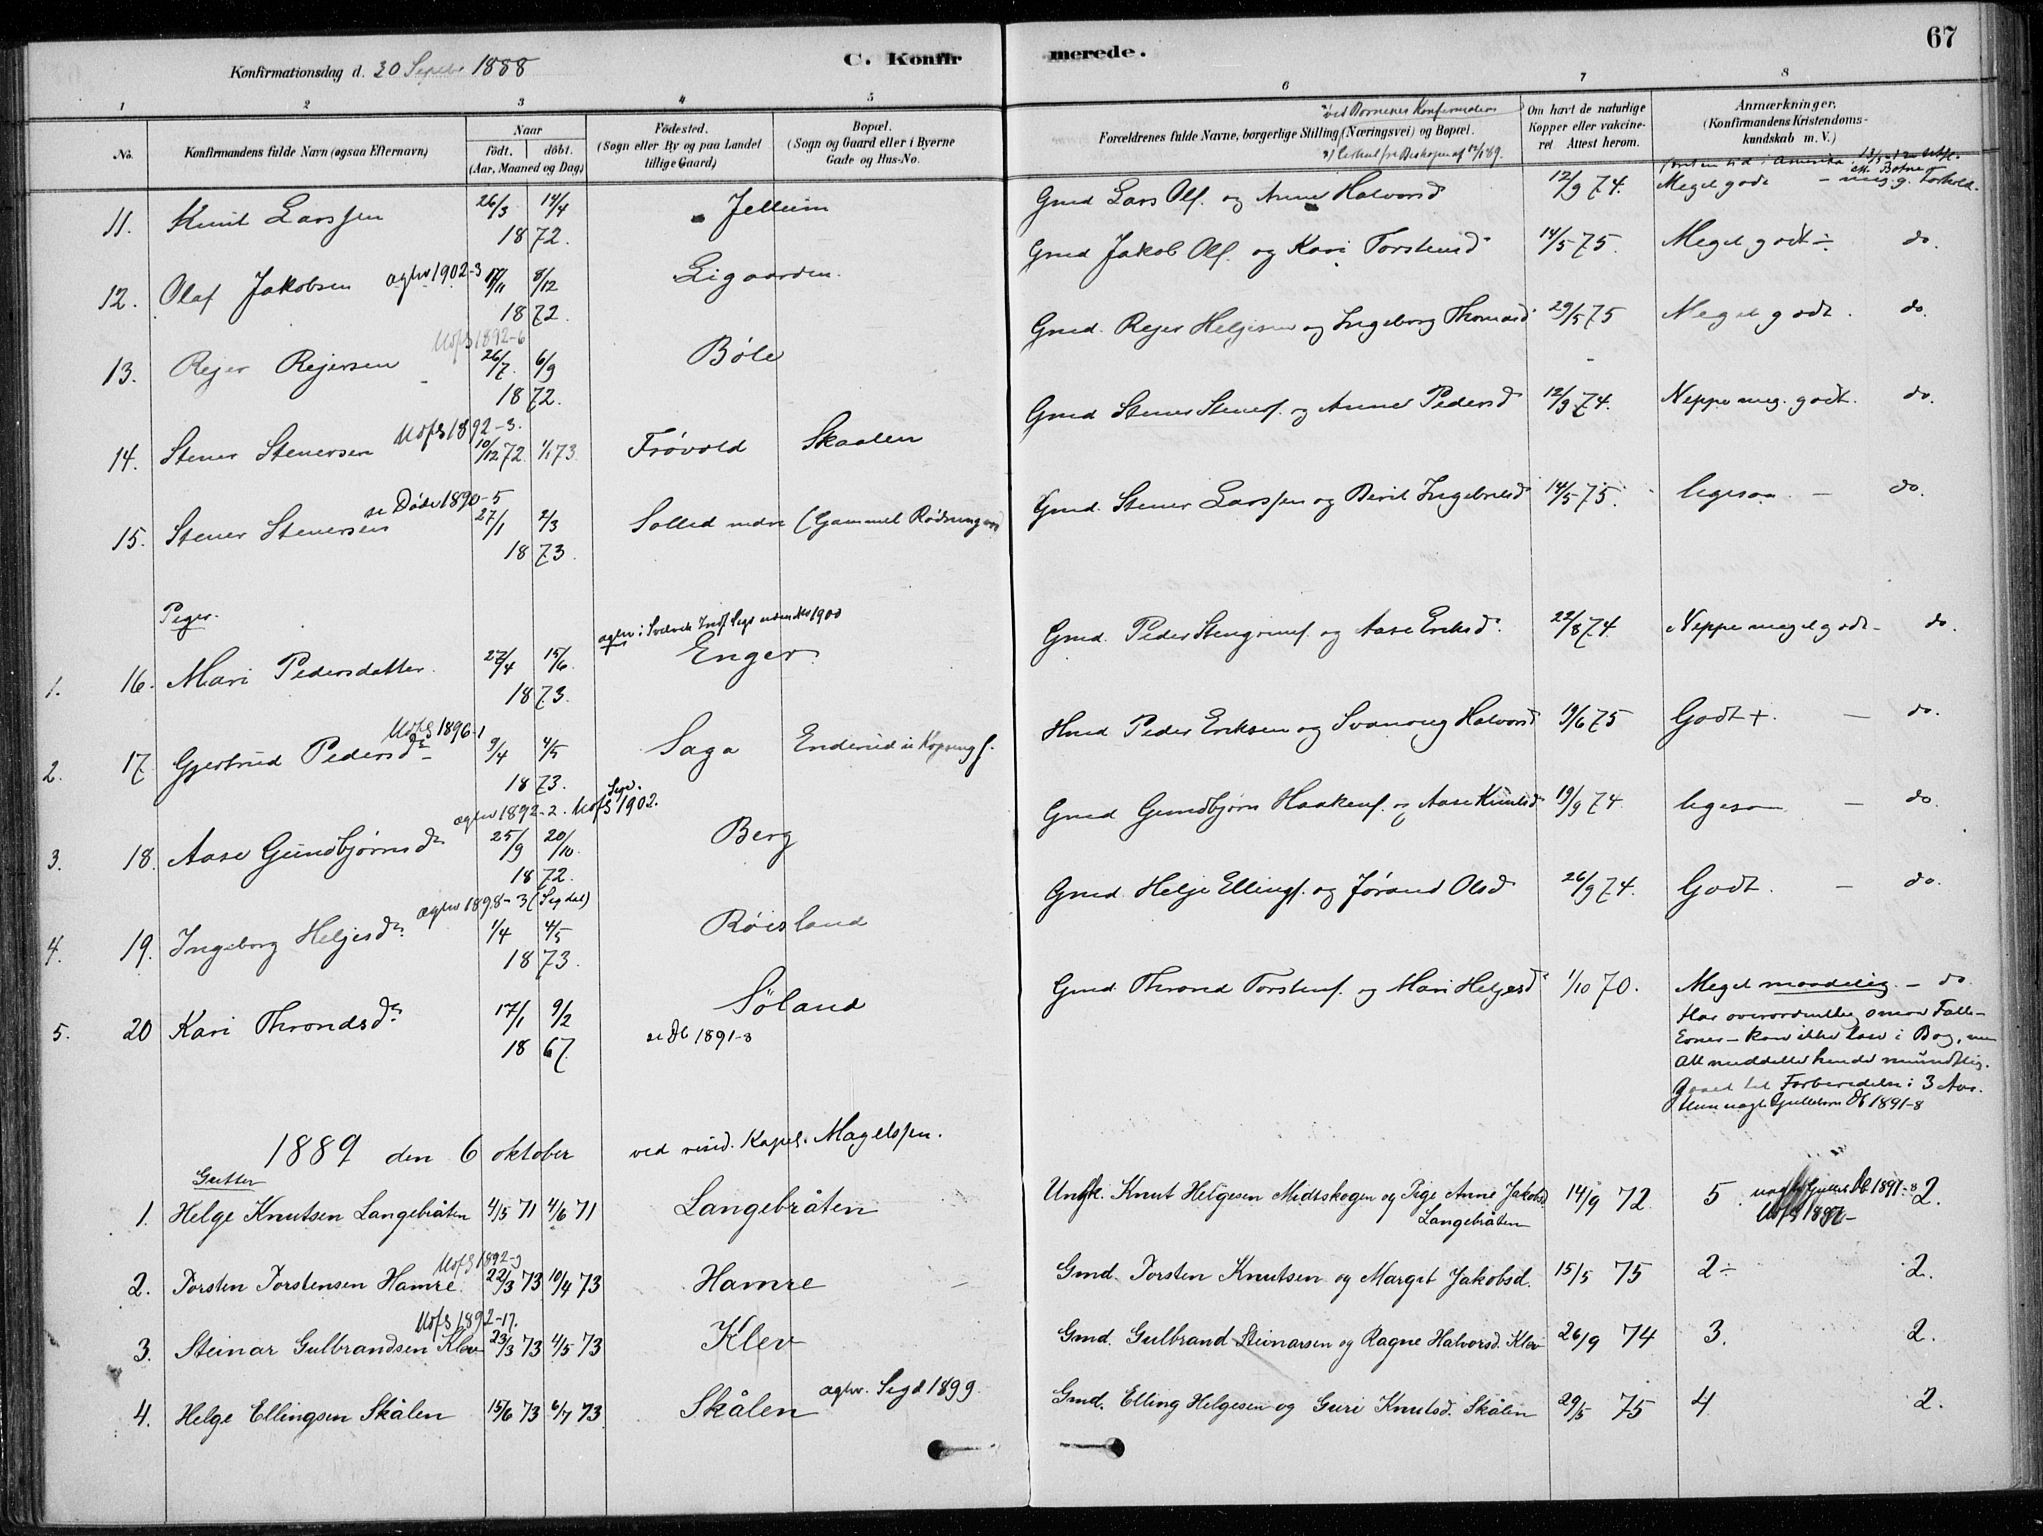 67
Konfirmationsdag d. 30 Septbr 1888
C. Konfirmerede.
1 2 3 4 5 6 7 8
No.
Konfirmandens fulde Navn (ogsaa Efternavn)
Naar
født. døbt.
(Aar, Maaned og Dag)
Fødested.
(Sogn eller By og paa Landet
tillige Gaard)
Bopæl.
(Sogn og Gaard eller i Byerne
Gade og Hus-No.
ved Børnenes Konfirmation
Forældrenes fulde Navne, borgerlige Stilling (Næringsvei) og Bopæl.
Om havt de naturlige
Kopper eller vakcine-
ret Attest herom.
Anmærkninger.
(Konfirmandens Kristendoms-
kundskab m. V.)
11. Knut Larssen 26/3 14/4 1872. Jelleim Gmd Lars Ols. og Anne Halvorsd 12/9 74. Meget godt – meg. g. Forhold.
12. Olaf Jakobsen 17/11 8/12 1872. Ligaarden. Gmd Jakob Ols. og Kari Torstensd 14/5 75. Meget godt ÷ do.
agtev 1902-3
13. Rejer Rejersen 26/7 6/9 1872. Bøle Gmd. Rejer Helgesen og Ingeborg Thomasd 29/5 75 Meget godt. do.
Udfl 1892-6
14. Stener Stenersen 10/12 72 1/1 73. Frøvold Skaalen Gmd Stener Steners. og Anne Pedersd 12/9 74. Neppe meg. godt. do.
Udfl 1892-3.
15. Stener Stenersen 27/1 2/3 1873. Solled nedre (Gammel Rødningen) Gmd. Stener Larssen og Berit Ingebretsd 14/5 75. ligesaa – do.
se Døde 1890-5
Piger.
1. 16. Mari Pedersdatter. 27/4 15/6 1873. Enger. Gmd. Peder Stengrims. og Aase Eriksd. 22/8 74 Neppe meget godt – do.
2. 17. Gjertrud Pedersdr 9/4 4/5 1873. Saga Enderud Gmd Peder Eriksen og Svanaug Halvorsd 19/6 75 Godt +. – do.
Udfl 1896-1
3. 18. Aase Gundbjørnsdr 25/9 20/10 1872. Berg Gmd Gundbjørn Haakens. og Aase Knutsd 19/9 74. ligesaa – do.
agtev 1892-2. Udfl 1902.
4. 19. Ingeborg Helgesdr. 1/4 4/5 1873. Røisland Gmd. Helge Ellings. og Jørand Olsd 26/9 74. Godt. – do.
agtev 1898-3 (Sigdal)
5. 20 Kari Throndsdr. 17/1 9/2 1867. Søland Gmd. Thrond Torstens. og Mari Helgesd 1/10 70. Meget maadelig. – do.
se Db 1891-8
Har overordentlig smaa Fatte-
Evner – kan ikke læse i Bog, men
Alt meddelt hende mundtlig.
Gaaet til Forberedelse i 3 Aar.
Db 1891-8
1889 den 6 oktober ved resid. Kapel. Magelssen.
Gutter
1. Helge Knutsen Langebråten 4/5 71 4/6 71 Langebråten Ungk. Knut Helgesen Midtskogen og Pige Anne Jakobsd. Langebråten 14/9 72. 5. Db 1891-8 2.
2. Torsten Torstensen Hamre. 22/3 73 10/4 73 Hamre Gmd. Torsten Knutsen og Margit Jakobsd. 15/5 75 2÷ 2.
Udfl 1892-9
3. Steinar Gulbrandsen Klev 23/3 73 4/5 73 Klev Gmd. Gulbrand Steinarsen og Ragne Halvorsd. Klev 26/9 74 3. 2.
Udfl 1892-17.
4. Helge Ellingsen Skålen 15/6 73 6/7 73 Skålen Gmd. Elling Helgesen og Guri Knutsd. Skålen 29/5 75 4 2.
agtev. Sigd 1899.